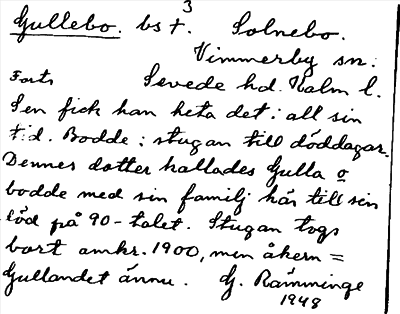 3
Gullebo. bs t. Solnebo.
Vimmerby sn.
Forts Sevede hd. Kalm l.
Sen fick han heta det i all sin
tid. Bodde i stugan till döddagar.
Dennes dotter kallades Gulla o
bodde med sin familj här till sin
död på 90-talet. Stugan togs
bort omkr. 1900, men åkern =
Gullandet ännu. G. Ramminge
1948